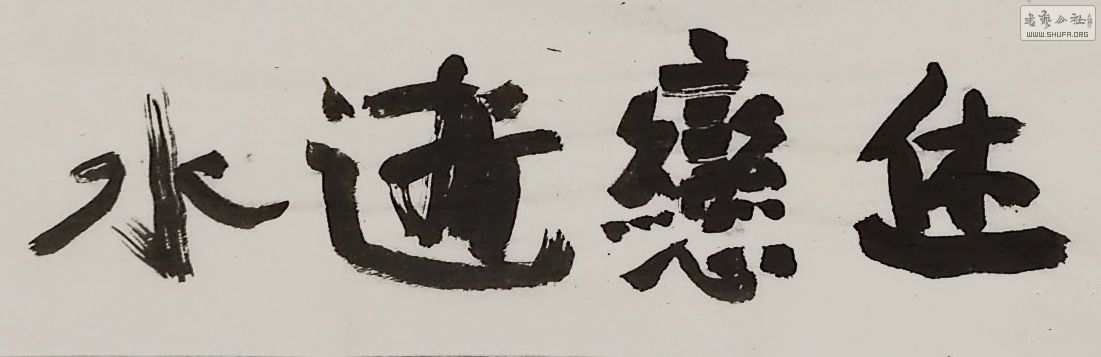 休戀逝水
書藝公社
WWW.SHUFA.ORG